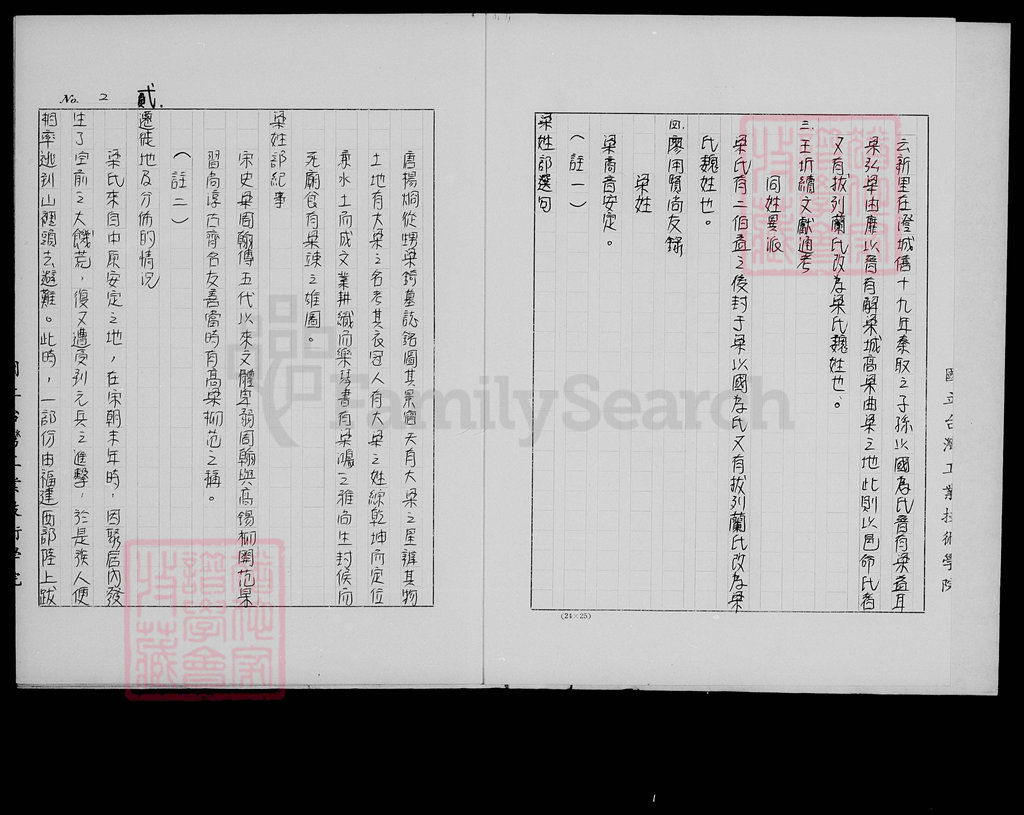 云新里在澄城僖十九年秦取之子孫以國為氏晉有梁益耳
梁弘梁由靡以晉有解梁城高梁曲梁之地此則以邑命氏者
又有拔列蘭氏改為梁氏魏姓也。
三.王圻續文獻通考
同姓異派
梁氏有二伯益之後封于梁以國為氏又有拔列蘭氏改為梁
氏魏姓也。
四.廖用賢尚友錄
梁姓
梁商音安定。
(註一)
梁姓部選句
(24×25)
國立台灣工業技術學院
No. 2
唐楊炯從甥梁錡墓誌銘圖其景宿天有大梁之星辨其物
土地有大梁之名考其衣冠人有大梁之姓練乾坤而定位
兼水土而成文業耕織而樂琴書有梁鴻之雅尚生封侯而
死廟食有梁竦之雄圖。
梁姓部紀事
宋史梁周翰傳五代以來文體卑弱周翰與高錫柳開范杲
習尚淳古齊名友善當時有高梁柳范之稱。
(註二)
貳.
遷徙地及分佈的情況
梁氏來自中原安定之地,在宋朝末年時,因聚居內發
生了空前之大饑荒,復又遭受到元兵之進擊,於是族人便
相率逃到山裡頭去避難。此時,一部份由福建西部陸上跋
FamilySearch